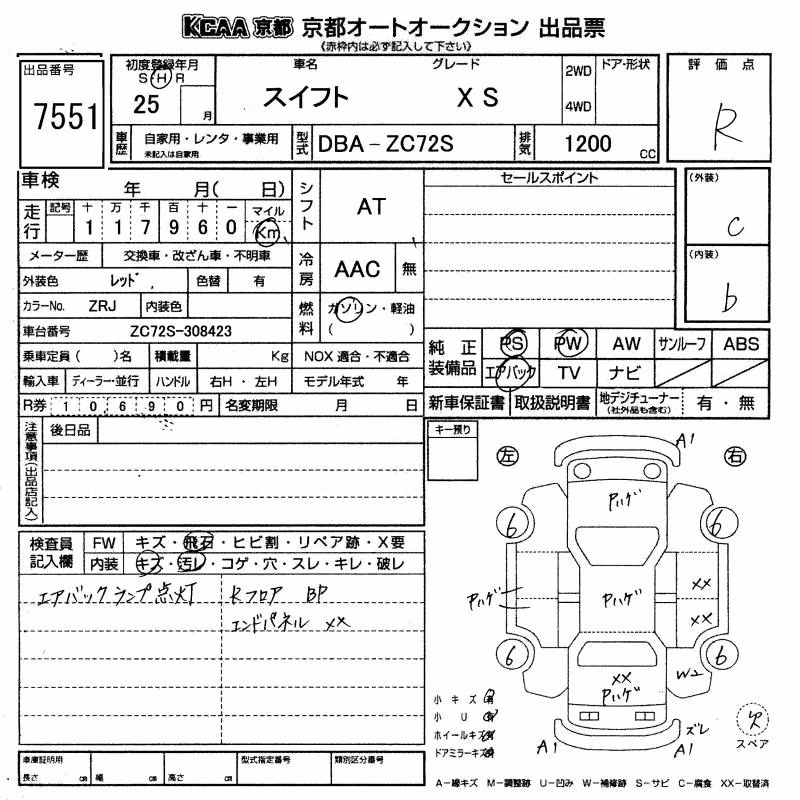 KCAA 京都 京都オートオークション 出品票
《赤枠内は必ず記入して下さい》
出品番号
7551
初度登録年月
S H R
25 月
車名
スイフト
グレード
X S
2WD
4WD
ドア・形状
評価点
R
車歴
自家用・レンタ・事業用
未記入は自家用
型式
DBA－ZC72S
排気
1200 CC
車検 年 月( 日)
走行
記号 十 万 千 百 十 一
1 1 7 9 6 0
マイル
Km
シフト
AT
セールスポイント
(外装)
C
(内装)
b
メーター歴 交換車・改ざん車・不明車
外装色 レッド 色替 有
冷房
AAC 無
カラーNo. ZRJ 内装色
燃料
ガソリン・軽油
( )
車台番号 ZC72S-308423
乗車定員( )名 積載量 Kg NOX 適合・不適合
輸入車 ディーラー・並行 ハンドル 右H ・ 左H モデル年式 年
R券 10690円 名変期限 月 日
純正装備品
PS PW AW サンルーフ ABS
エアバック TV ナビ
新車保証書 取扱説明書 地デジチューナー
(社外品も含む)
有・無
注意事項(出品店記入)
後日品
キー預り
左 右
A1
Pハゲ
6 6
XX
Pハゲ
Pハゲ
XX
6 6
XX
Pハゲ
W2
A1
ズレ
A1
検査員記入欄
FW キズ・飛石・ヒビ割・リペア跡・X要
内装 キズ・汚レ・コゲ・穴・スレ・キレ・破レ
エアバックランプ点灯
Rフロア BP
エンドパネル XX
小キズ
小U
ホイールキズ
ドアミラーキズ
欠
スペア
車庫証明用
長さ cm 幅 cm 高さ cm
型式指定番号
類別区分番号
A－線キズ M－調整跡 U－凹み W－補修跡 S－サビ C－腐食 XX－取替済